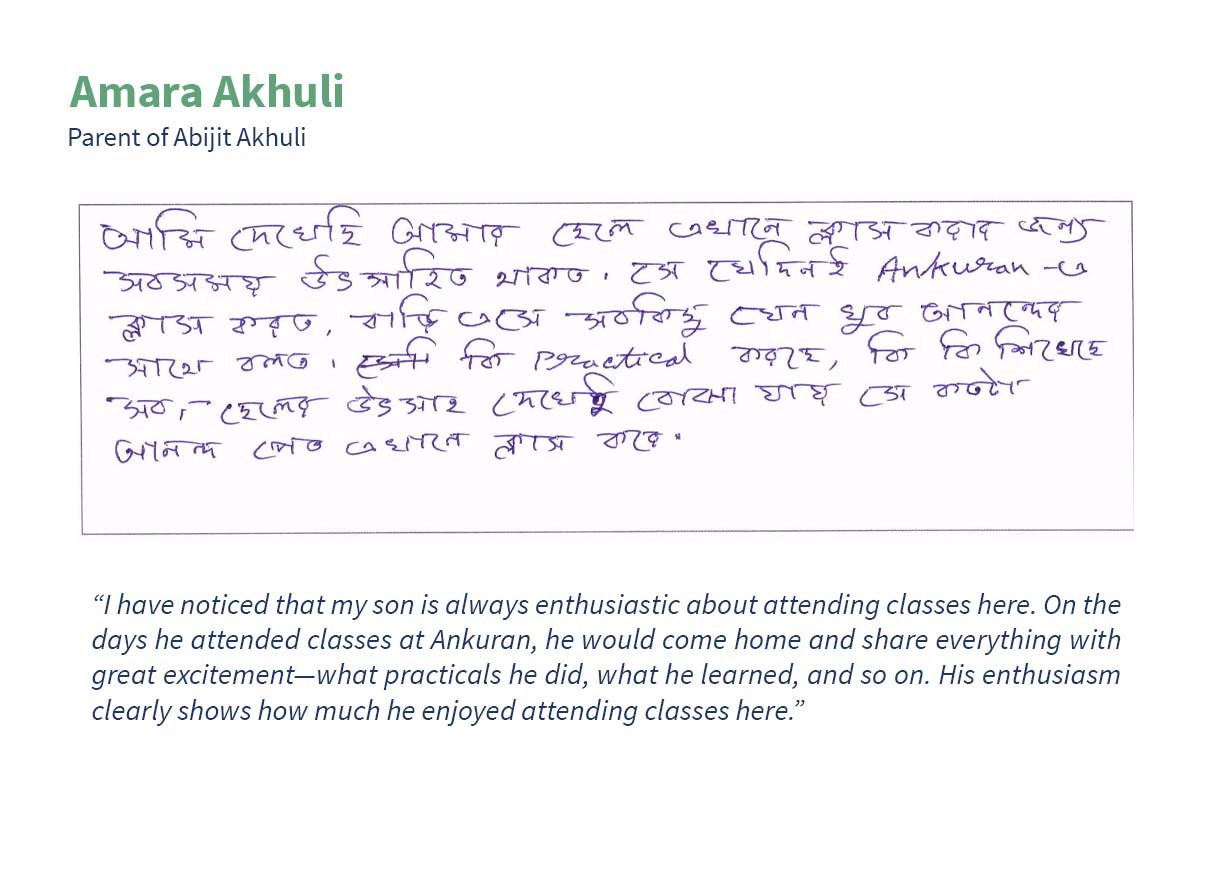 Amara Akhuli
Parent of Abijit Akhuli
আমি দেখেছি আমার ছেলে এখানে ক্লাস করার জন্য
সবসময় উৎসাহিত থাকত। সে যেদিনই Ankuran -এ
ক্লাস করত, বাড়ি এসে সবকিছু যেন খুব আনন্দের
সাথে বলত। কি Practical করছে, কি কি শিখেছে
সব। ছেলের উৎসাহ দেখেই বোঝা যায় সে কতটা
আনন্দ পেত এখানে ক্লাস করে।
“I have noticed that my son is always enthusiastic about attending classes here. On the
days he attended classes at Ankuran, he would come home and share everything with
great excitement—what practicals he did, what he learned, and so on. His enthusiasm
clearly shows how much he enjoyed attending classes here.”